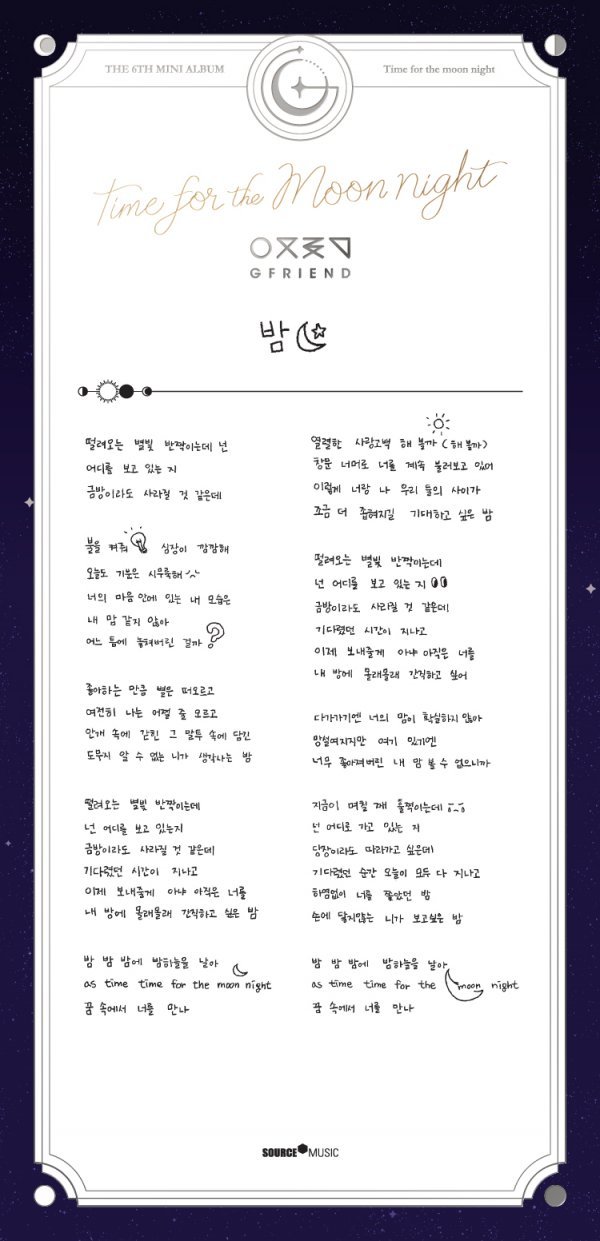 THE 6TH MINI ALBUM
Time for the moon night
Time for the Moon night
여자친구
GFRIEND
밤
떨려오는 별빛 반짝이는데 넌
어디를 보고 있는 지
금방이라도 사라질 것 같은데
불을 켜줘 심장이 깜깜해
오늘도 기분은 시무룩해
너의 마음 안에 있는 내 모습은
내 맘 같지 않아
어느 틈에 놓쳐버린 걸까
좋아하는 만큼 별은 떠오르고
여전히 나는 어쩔 줄 모르고
안개 속에 갇힌 그 말투 속에 담긴
도무지 알 수 없는 니가 생각나는 밤
떨려오는 별빛 반짝이는데
넌 어디를 보고 있는지
금방이라도 사라질 것 같은데
기다렸던 시간이 지나고
이제 보내줄게 아냐 아직은 너를
내 방에 몰래몰래 간직하고 싶은 밤
밤 밤 밤에 밤하늘을 날아
as time time for the moon night
꿈 속에서 너를 만나
열렬한 사랑고백 해 볼까 (해 볼까)
창문 너머로 너를 계속 불러보고 있어
이렇게 너랑 나 우리 둘의 사이가
조금 더 좁혀지길 기대하고 싶은 밤
떨려오는 별빛 반짝이는데
넌 어디를 보고 있는 지
금방이라도 사라질 것 같은데
기다렸던 시간이 지나고
이제 보내줄게 아냐 아직은 너를
내 방에 몰래몰래 간직하고 싶어
다가가기엔 너의 맘이 확실하지 않아
망설여지지만 여기 있기엔
너무 좋아져버린 내 맘 볼 수 없으니까
지금이 며칠 째 훌쩍이는데
넌 어디로 가고 있는 지
당장이라도 따라가고 싶은데
기다렸던 순간 오늘이 모두 다 지나고
하염없이 너를 쫓았던 밤
손에 닿지않는 니가 보고싶은 밤
밤 밤 밤에 밤하늘을 날아
as time time for the moon night
꿈 속에서 너를 만나
SOURCE MUSIC